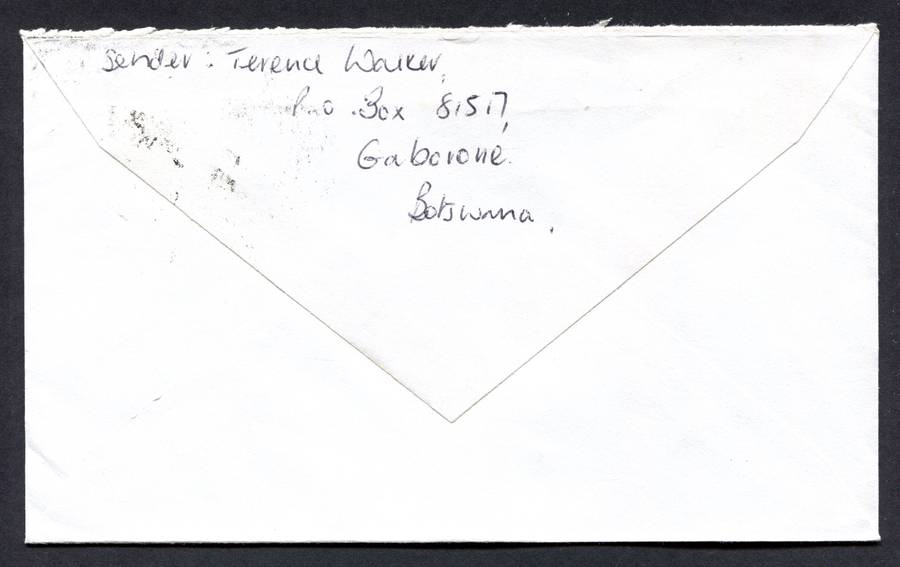 Sender: Terence Walker,
P.O. Box 81517,
Gaborone.
Botswana.